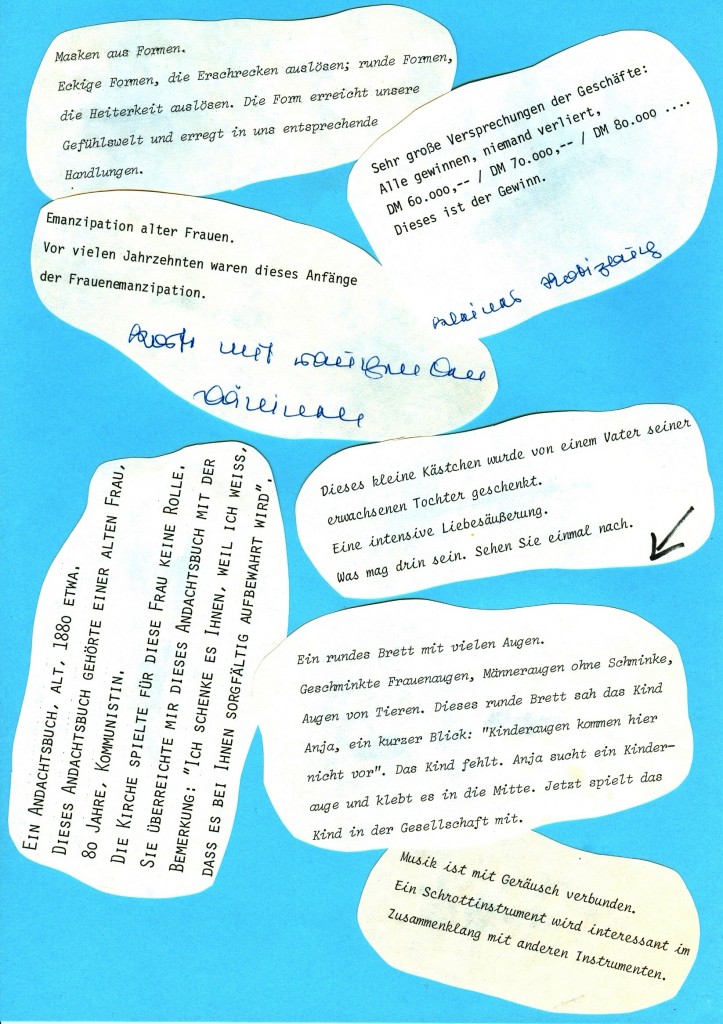 Masken aus Formen.
Eckige Formen, die Erschrecken auslösen; runde Formen,
die Heiterkeit auslösen. Die Form erreicht unsere
Gefühlswelt und erregt in uns entsprechende
Handlungen.
Sehr große Versprechungen der Geschäfte:
Alle gewinnen, niemand verliert,
DM 60.000,-- / DM 70.000,-- / DM 80.000 ....
Dieses ist der Gewinn.
Emanzipation alter Frauen.
Vor vielen Jahrzehnten waren dieses Anfänge
der Frauenemanzipation.
mit
Dieses kleine Kästchen wurde von einem Vater seiner
erwachsenen Tochter geschenkt.
Eine intensive Liebesäußerung.
Was mag drin sein. Sehen Sie einmal nach.
Ein Andachtsbuch, alt, 1880 etwa.
Dieses Andachtsbuch gehörte einer alten Frau,
80 Jahre, Kommunistin.
Die Kirche spielte für diese Frau keine Rolle.
Sie überreichte mir dieses Andachtsbuch mit der
Bemerkung: "Ich schenke es Ihnen, weil ich weiss,
dass es bei Ihnen sorgfältig aufbewahrt wird".
Ein rundes Brett mit vielen Augen.
Geschminkte Frauenaugen, Männeraugen ohne Schminke,
Augen von Tieren. Dieses runde Brett sah das Kind
Anja, ein kurzer Blick: "Kinderaugen kommen hier
nicht vor". Das Kind fehlt. Anja sucht ein Kinder-
auge und klebt es in die Mitte. Jetzt spielt das
Kind in der Gesellschaft mit.
Musik ist mit Geräusch verbunden.
Ein Schrottinstrument wird interessant im
Zusammenklang mit anderen Instrumenten.